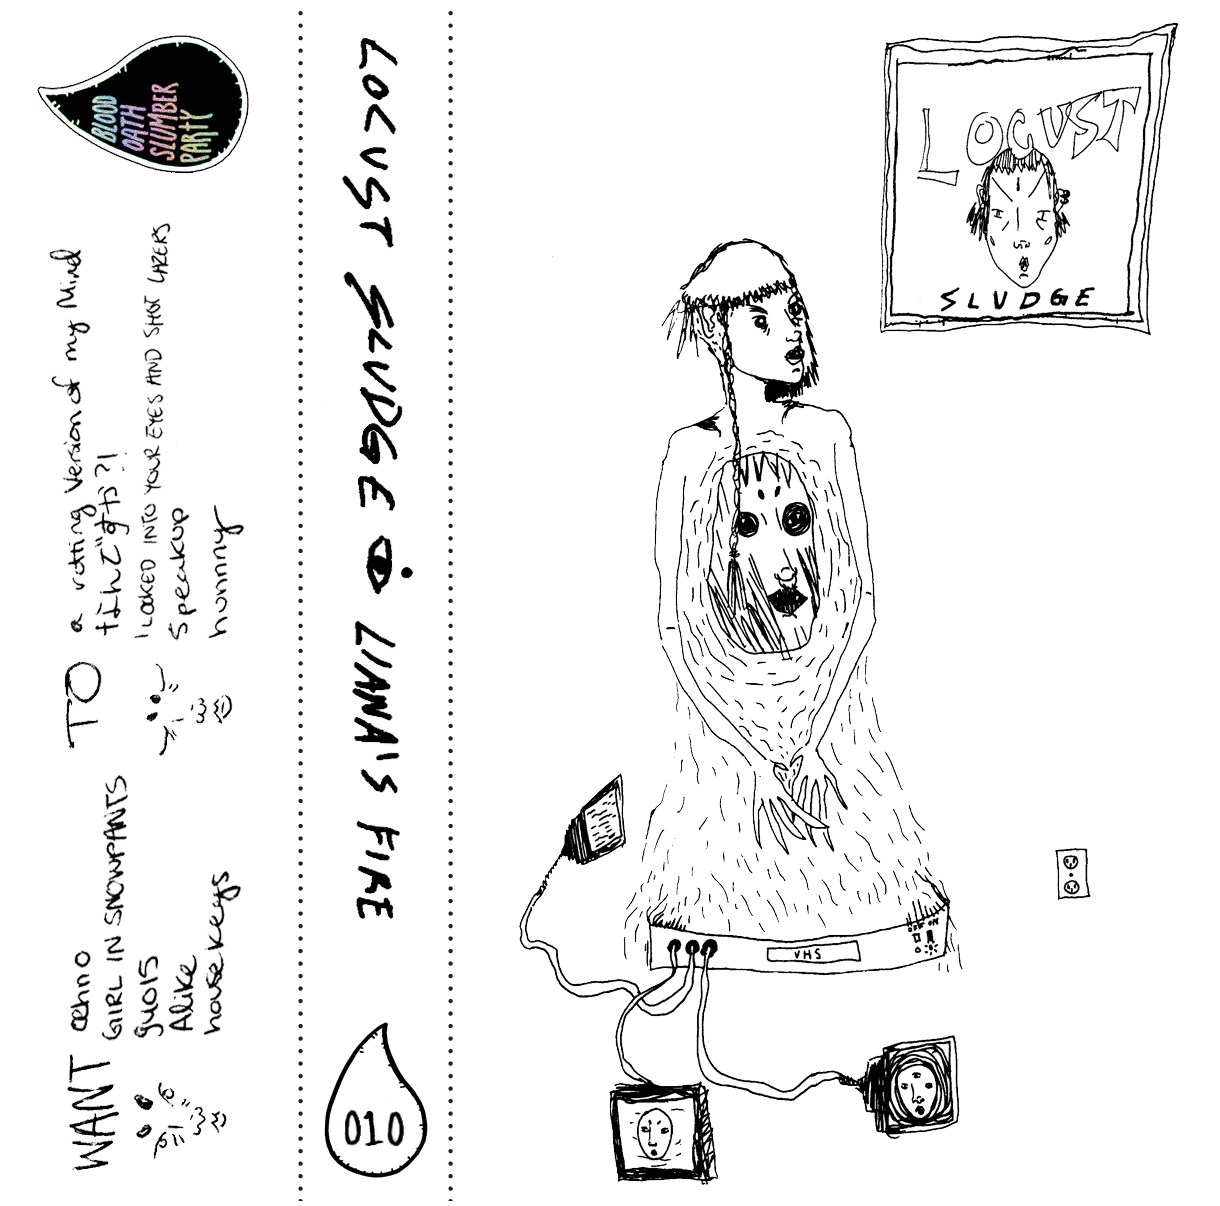 BLOOD
OATH
SLUMBER
PARTY
WANT
oehno
GIRL IN SNOWPANTS
guois
Alike
house keys
TO
a rotting version of my Mind
なんですか?!
I LOOKED INTO YOUR EYES AND SHOT LAZERS
Speakup
hunnny
LOCUST SLUDGE LIANA'S FIRE
010
LOCUST
SLUDGE
VHS